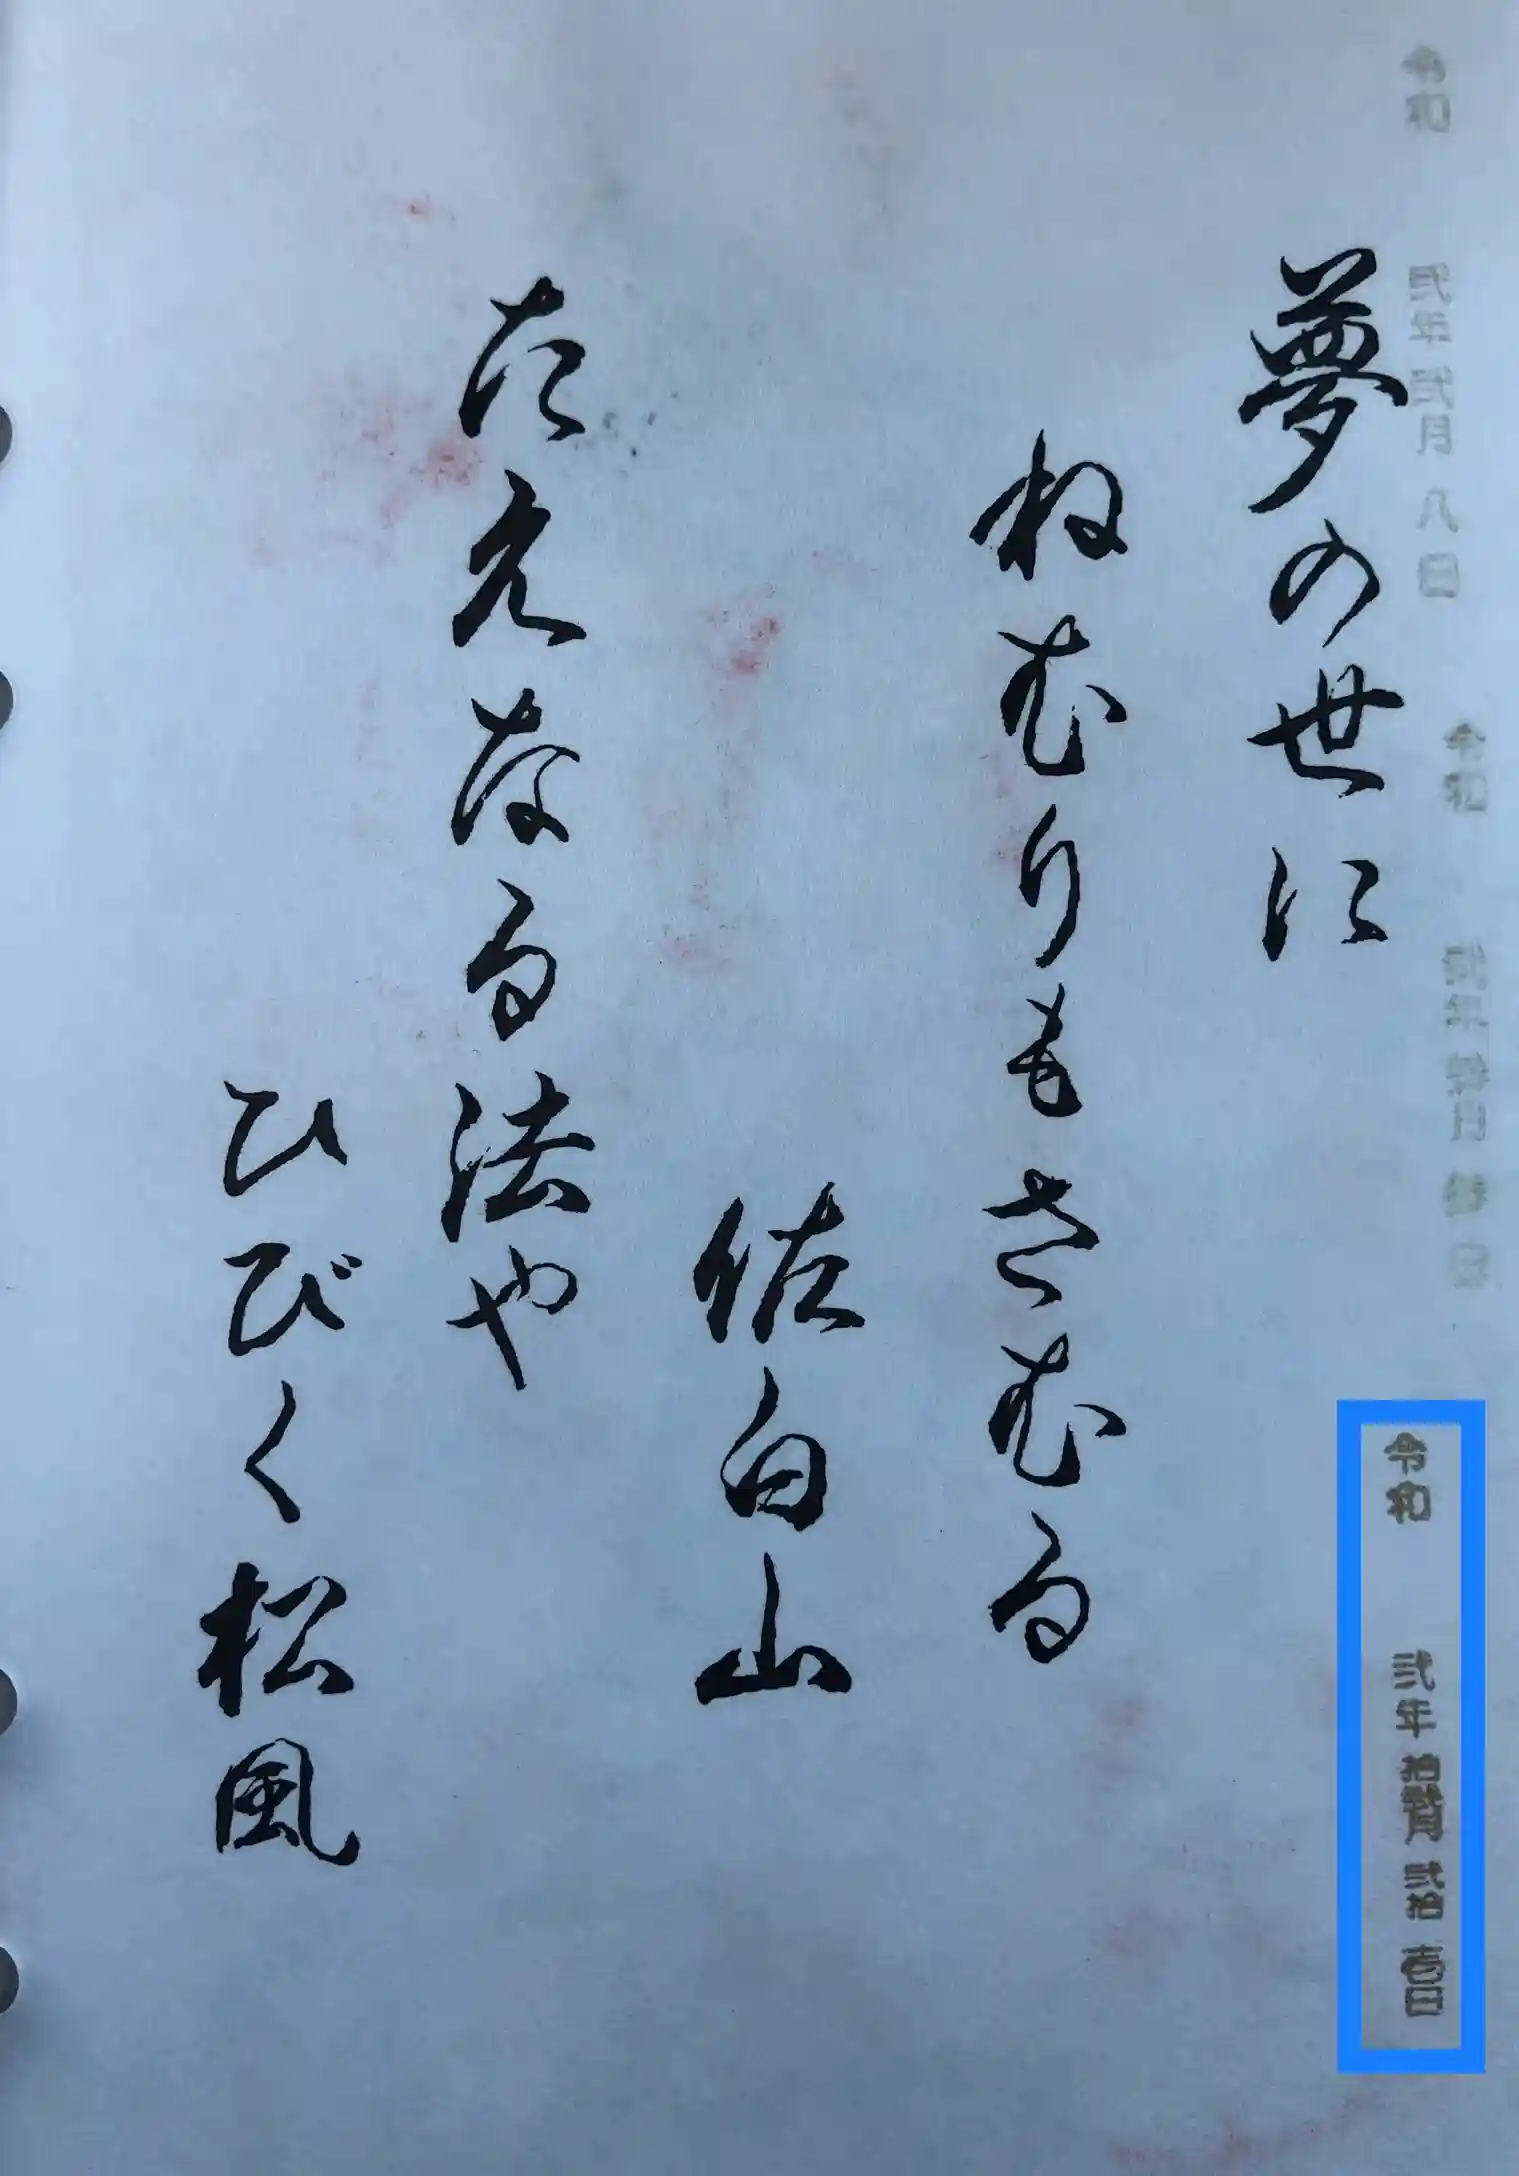 夢の世に
ねむりもさむる
佐白山
たえなる法や
ひびく松風
令和 弐年 弐月 八日
令和 弐年
令和 弐年 拾弐月 弐拾 壱日